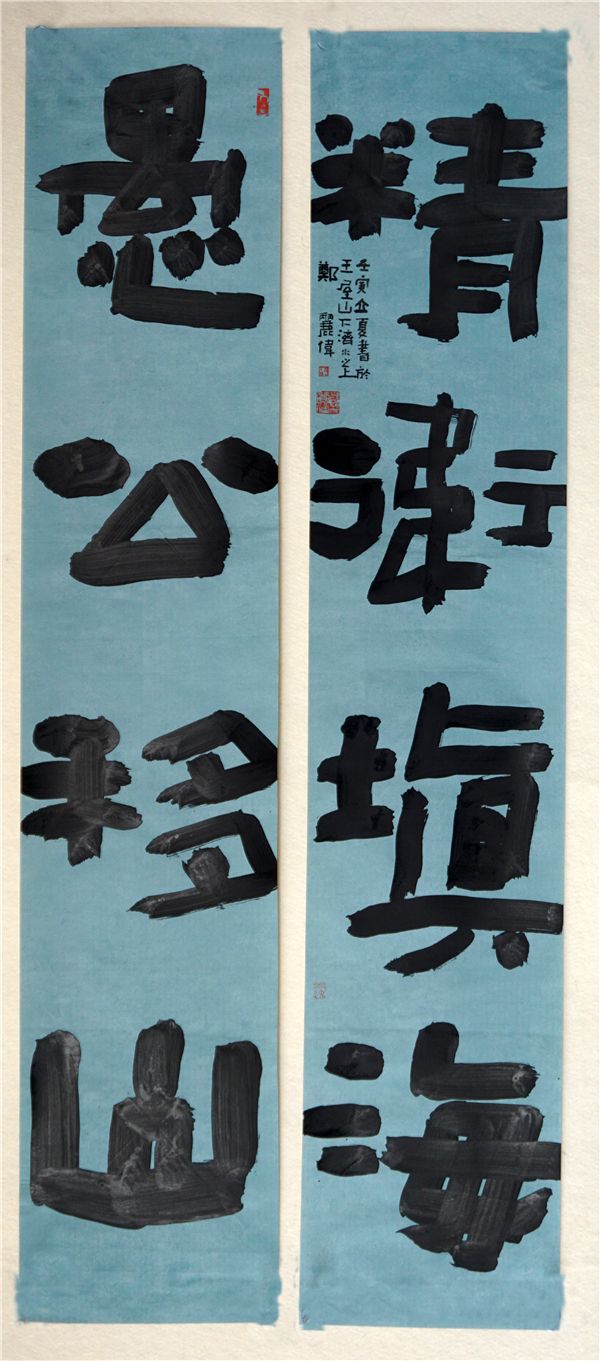 愚公移山
精衛填海
壬寅立夏書於
王屋山下濟水之上
鄭麗偉